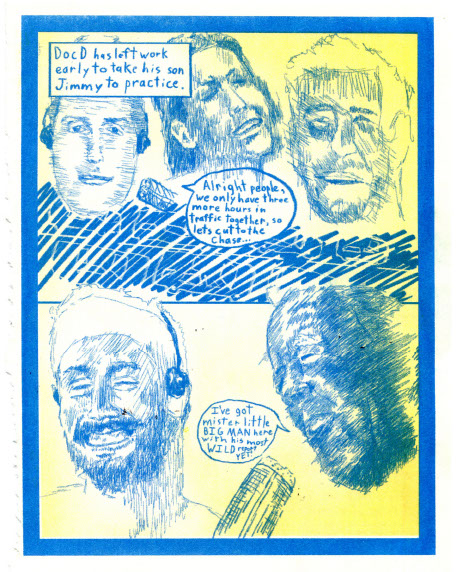 DocD has left work
early to take his son
Jimmy to practice.
Alright people,
we only have three
more hours in
traffic together, so
lets cut to the
chase...
I've got
mister little
BIG MAN here
with his most
WILD
YET!